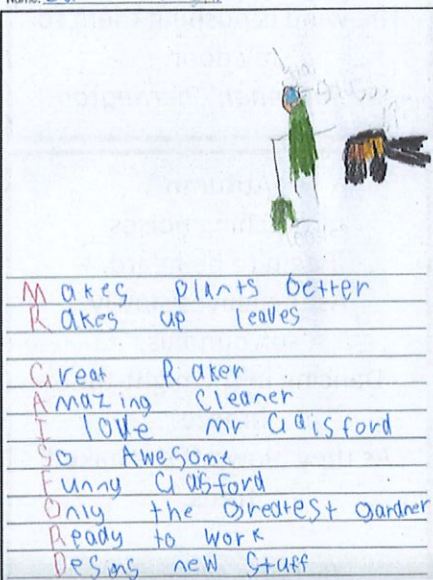 Name:
Makes plants better
Rakes up leaves
Great Raker
Amazing Cleaner
I love mr Gaisford
So Awesome
Funny Gasford
Only the Greatest Gardner
Ready to work
Desigs new stuff